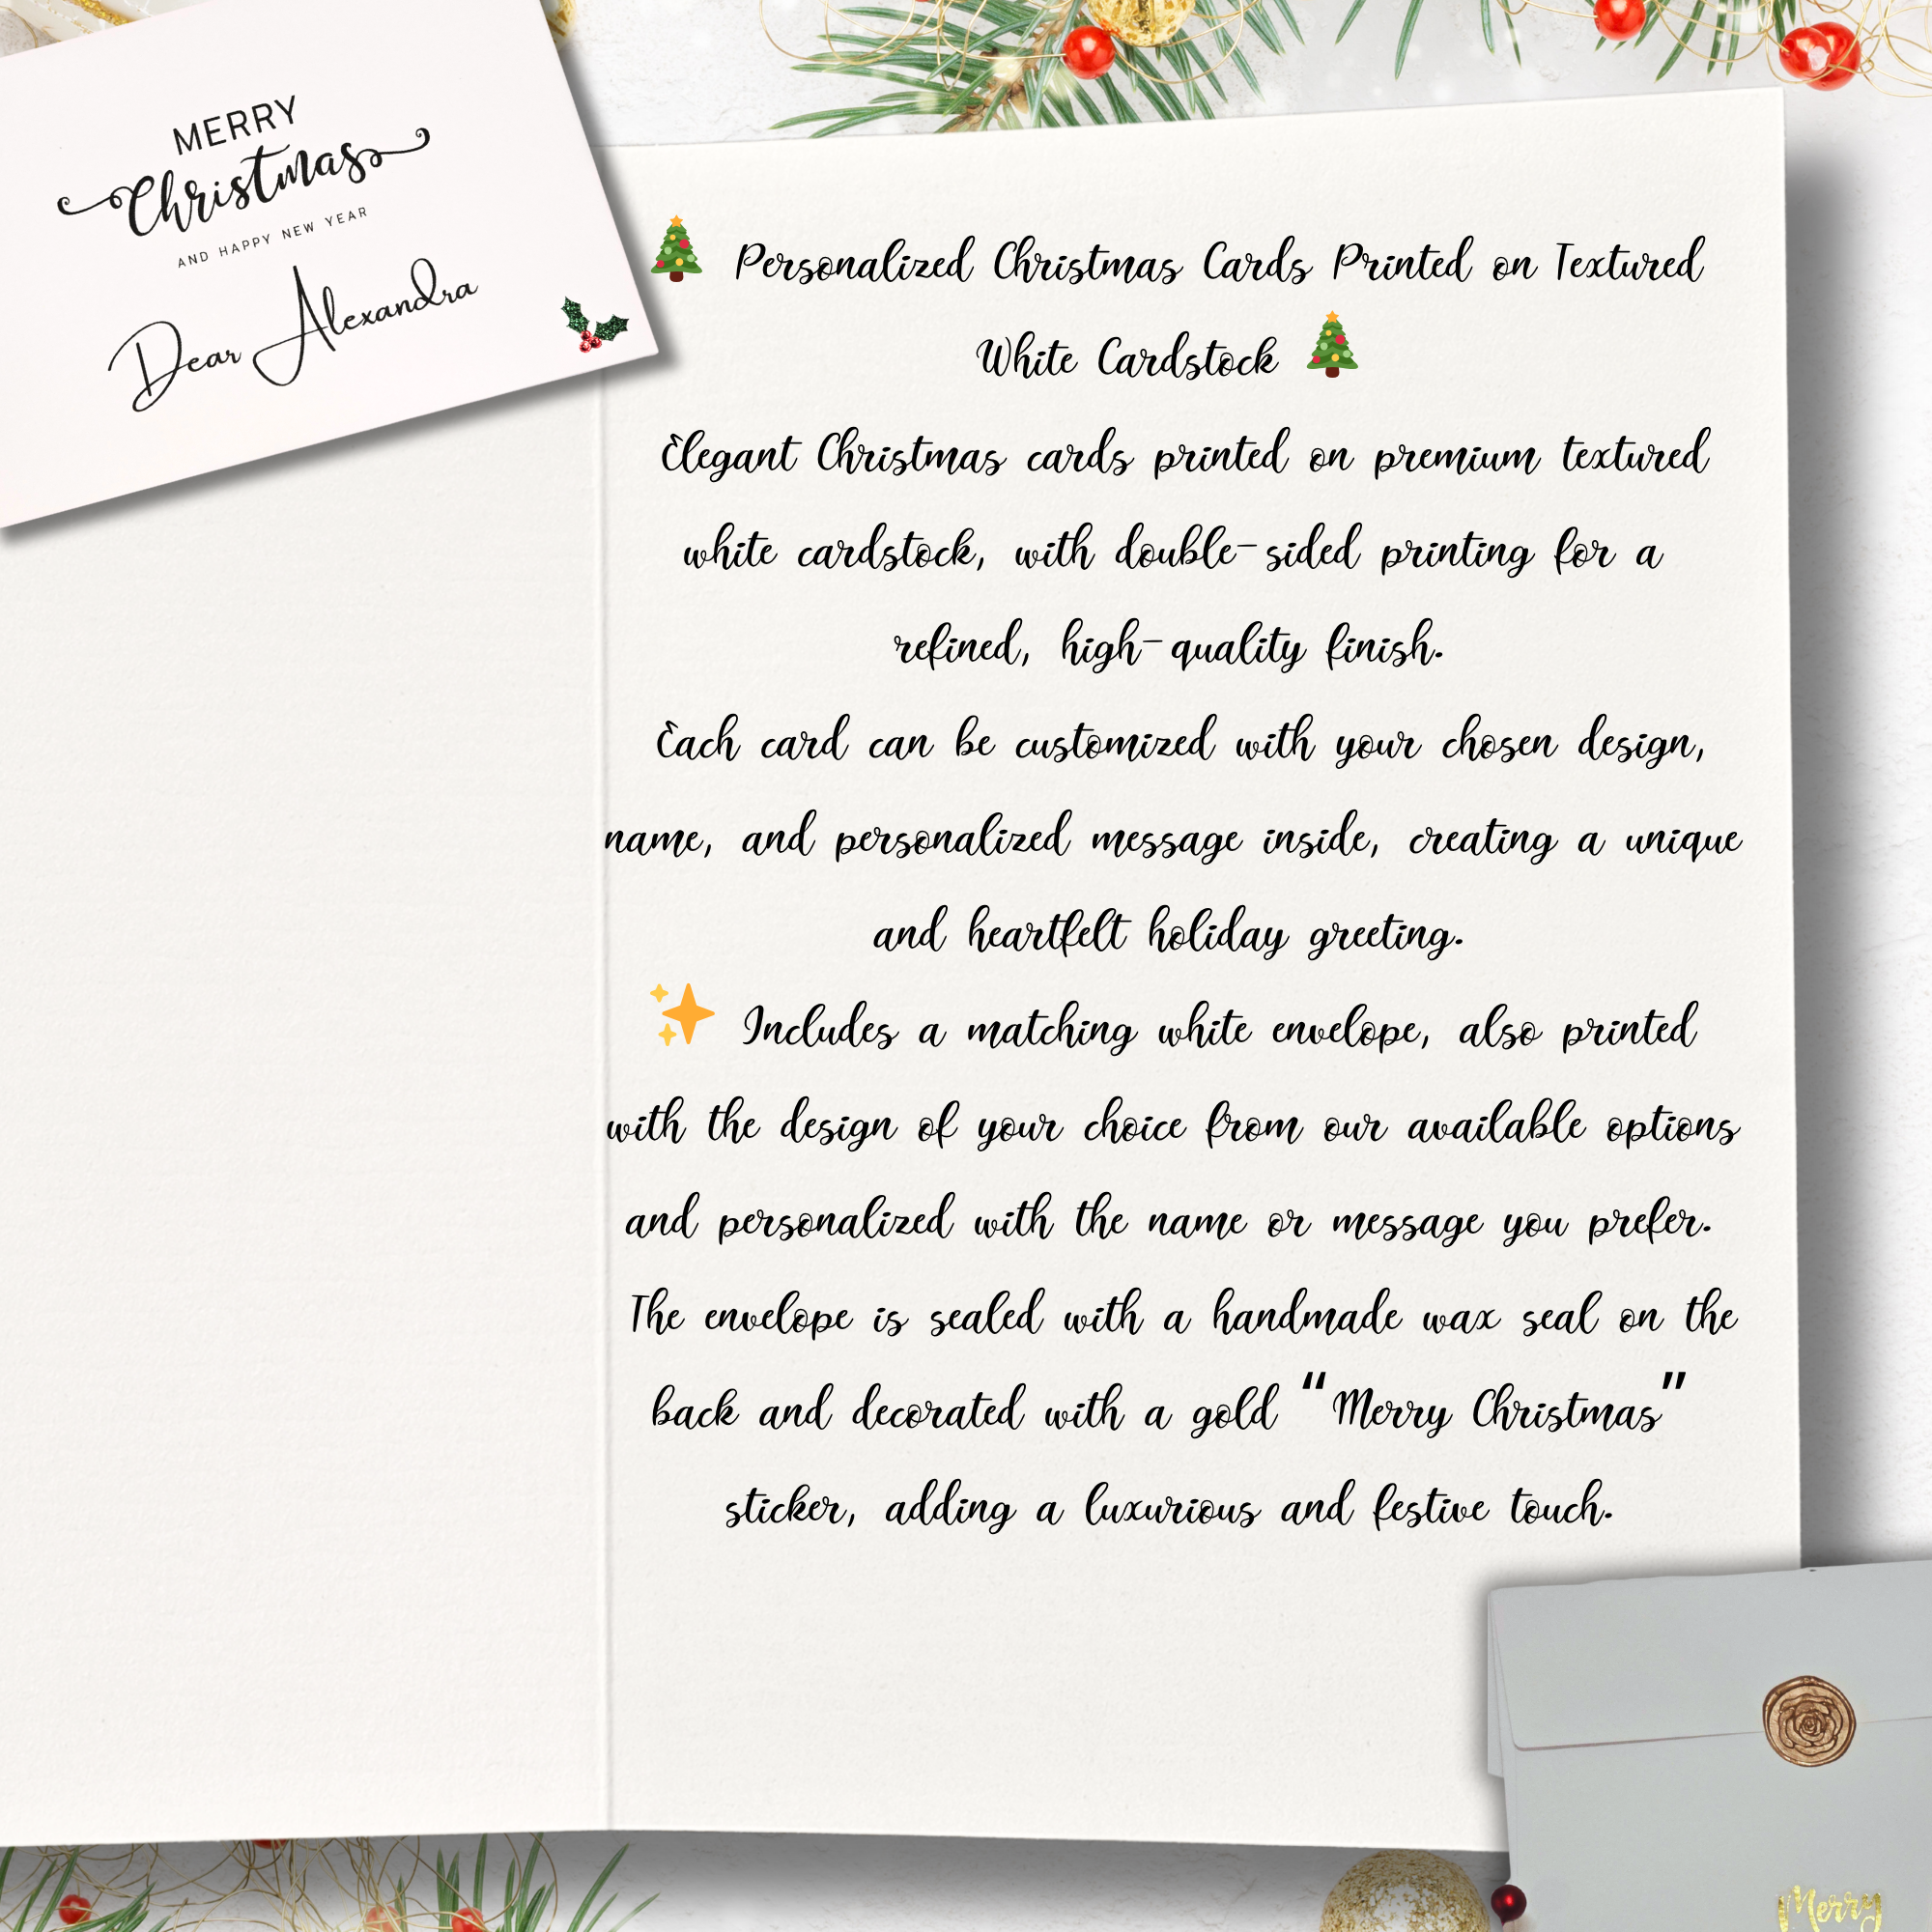 MERRY
Christmas
AND HAPPY NEW YEAR
Dear Alexandra
🎄 Personalized Christmas Cards Printed on Textured
White Cardstock 🎄
Elegant Christmas cards printed on premium textured
white cardstock, with double-sided printing for a
refined, high-quality finish.
Each card can be customized with your chosen design,
name, and personalized message inside, creating a unique
and heartfelt holiday greeting.
✨ Includes a matching white envelope, also printed
with the design of your choice from our available options
and personalized with the name or message you prefer.
The envelope is sealed with a handmade wax seal on the
back and decorated with a gold “Merry Christmas”
sticker, adding a luxurious and festive touch.
Merry